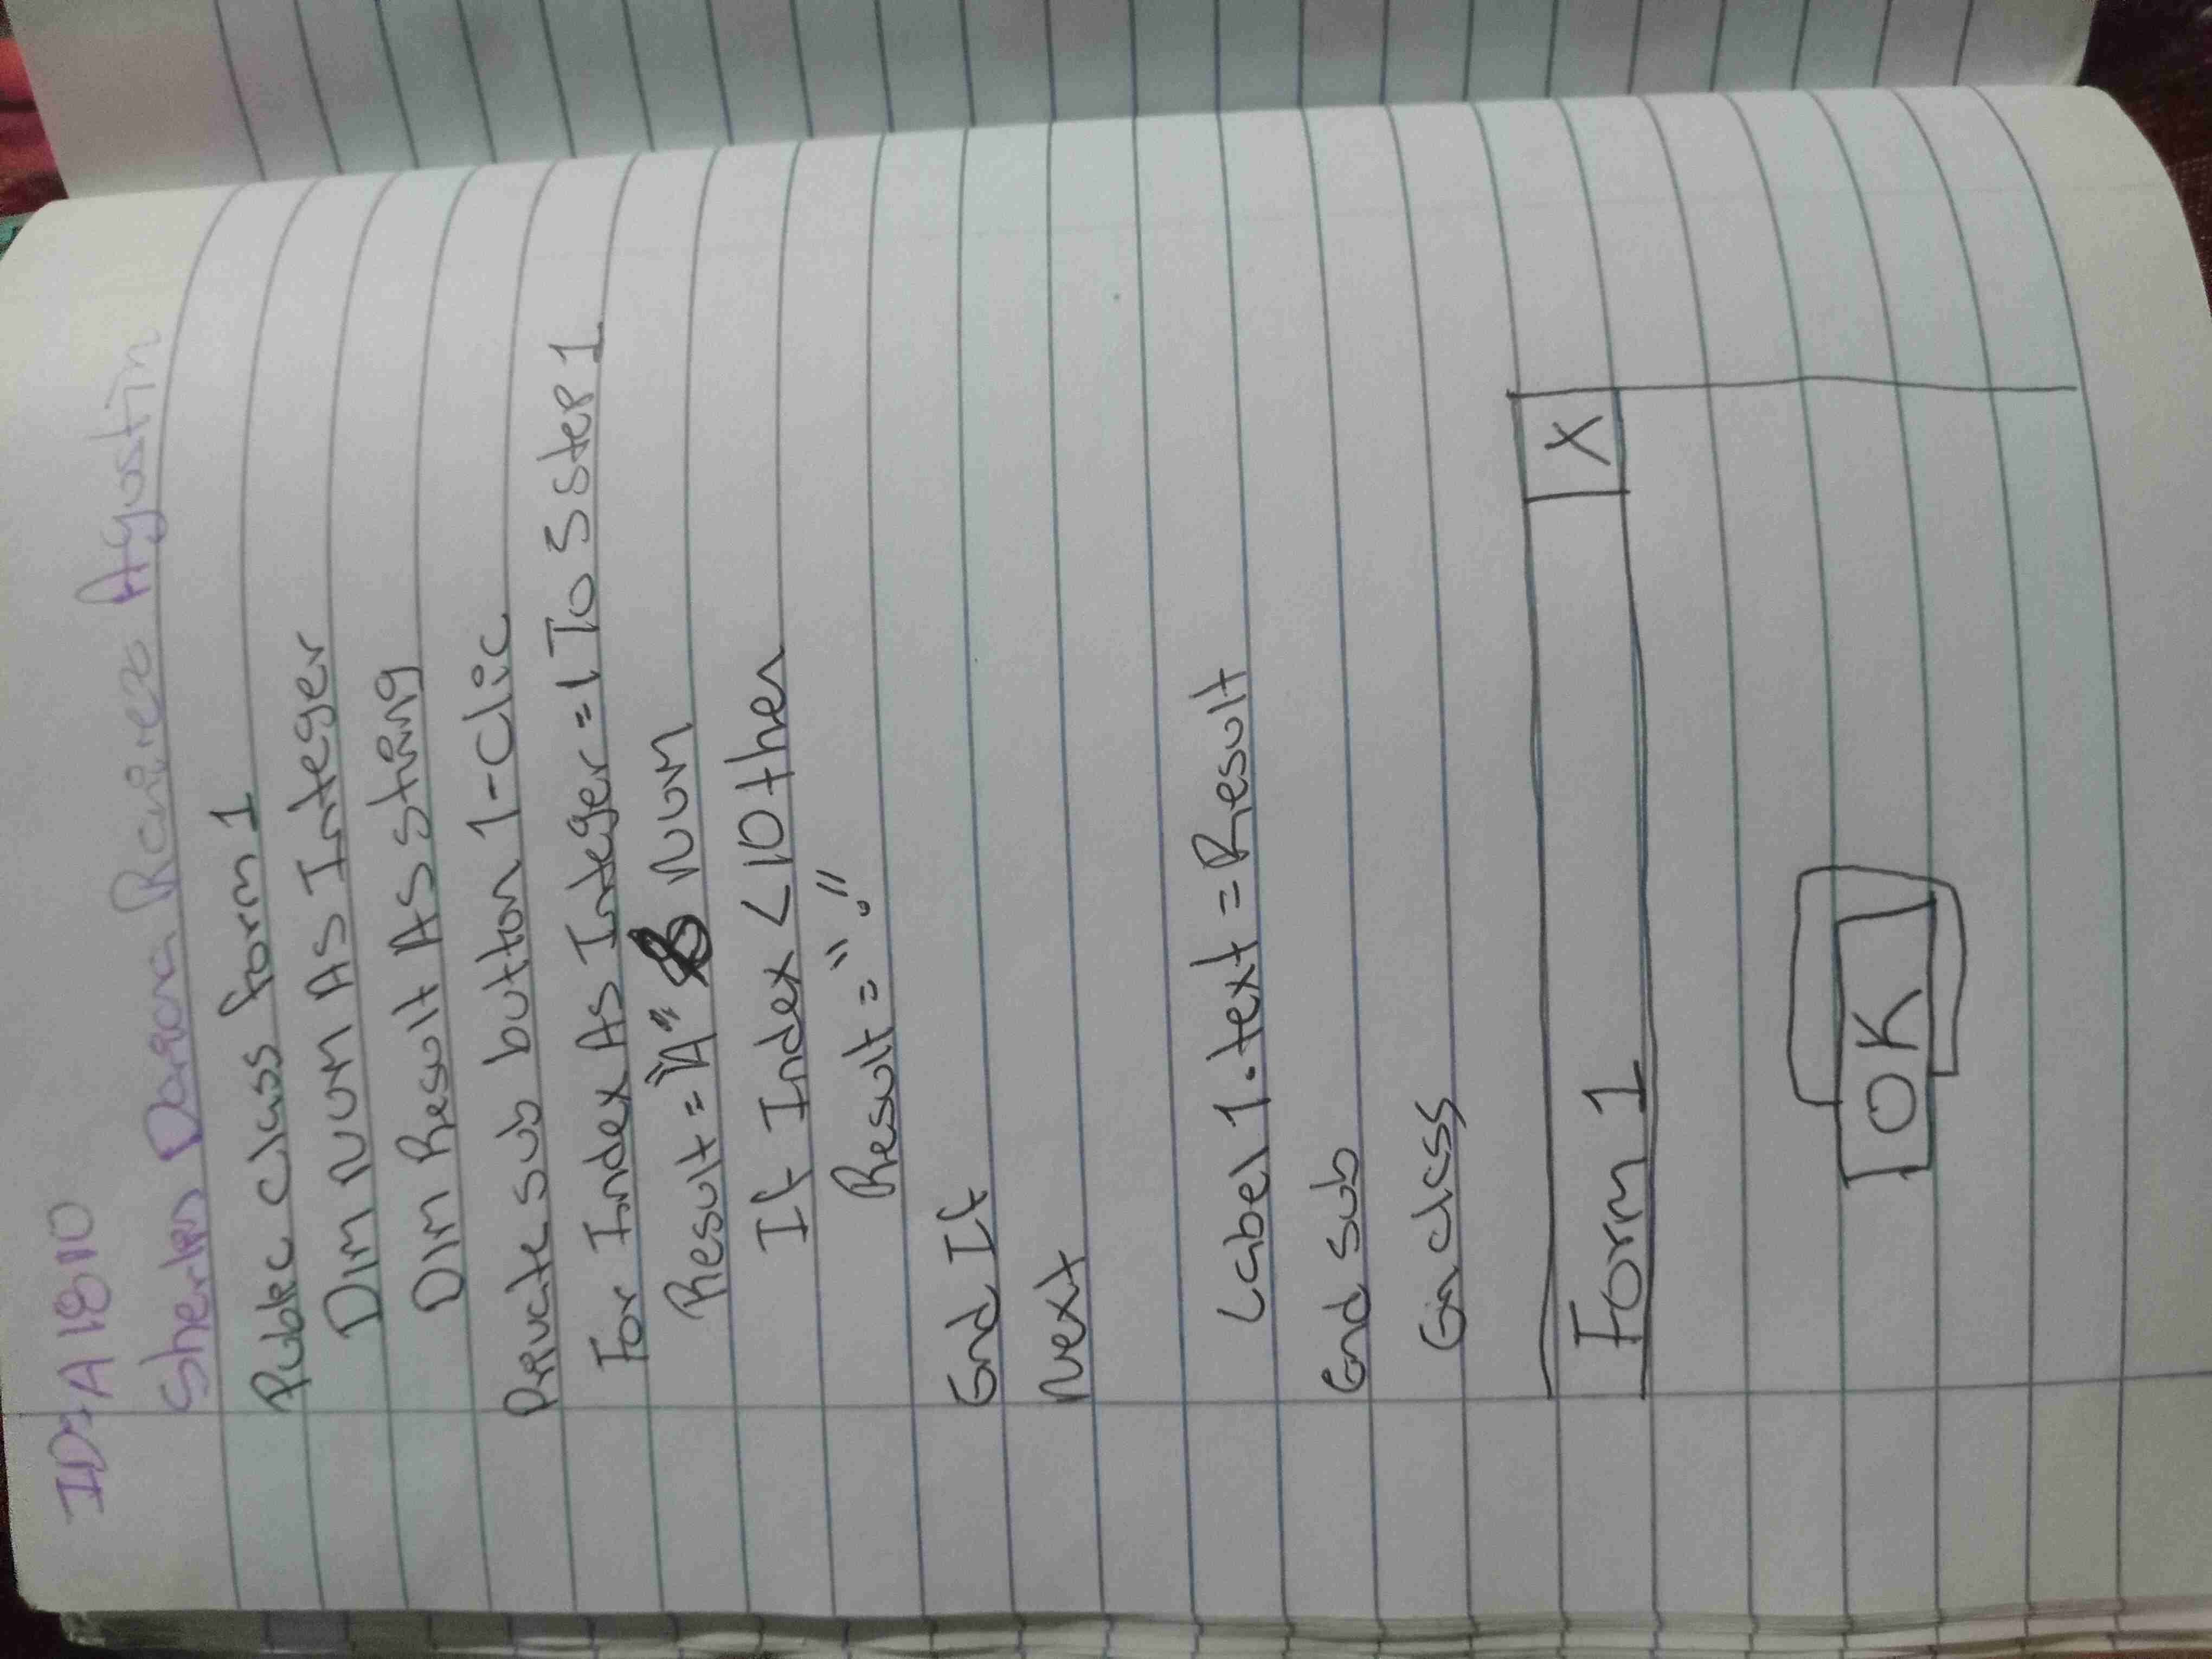 IDSA1810
Sherlyn Dayana Ramirez Agustin
Public class form 1
Dim NUM AS Integer
Dim Result AS string
Private sub button 1-clic
For Index As Integer = 1 To 5 step 1
Result = "A" & NUM
If Index < 10 then
Result = "."
End If
Next
Label 1.text = Result
End sub
En class
Form 1 X
OK